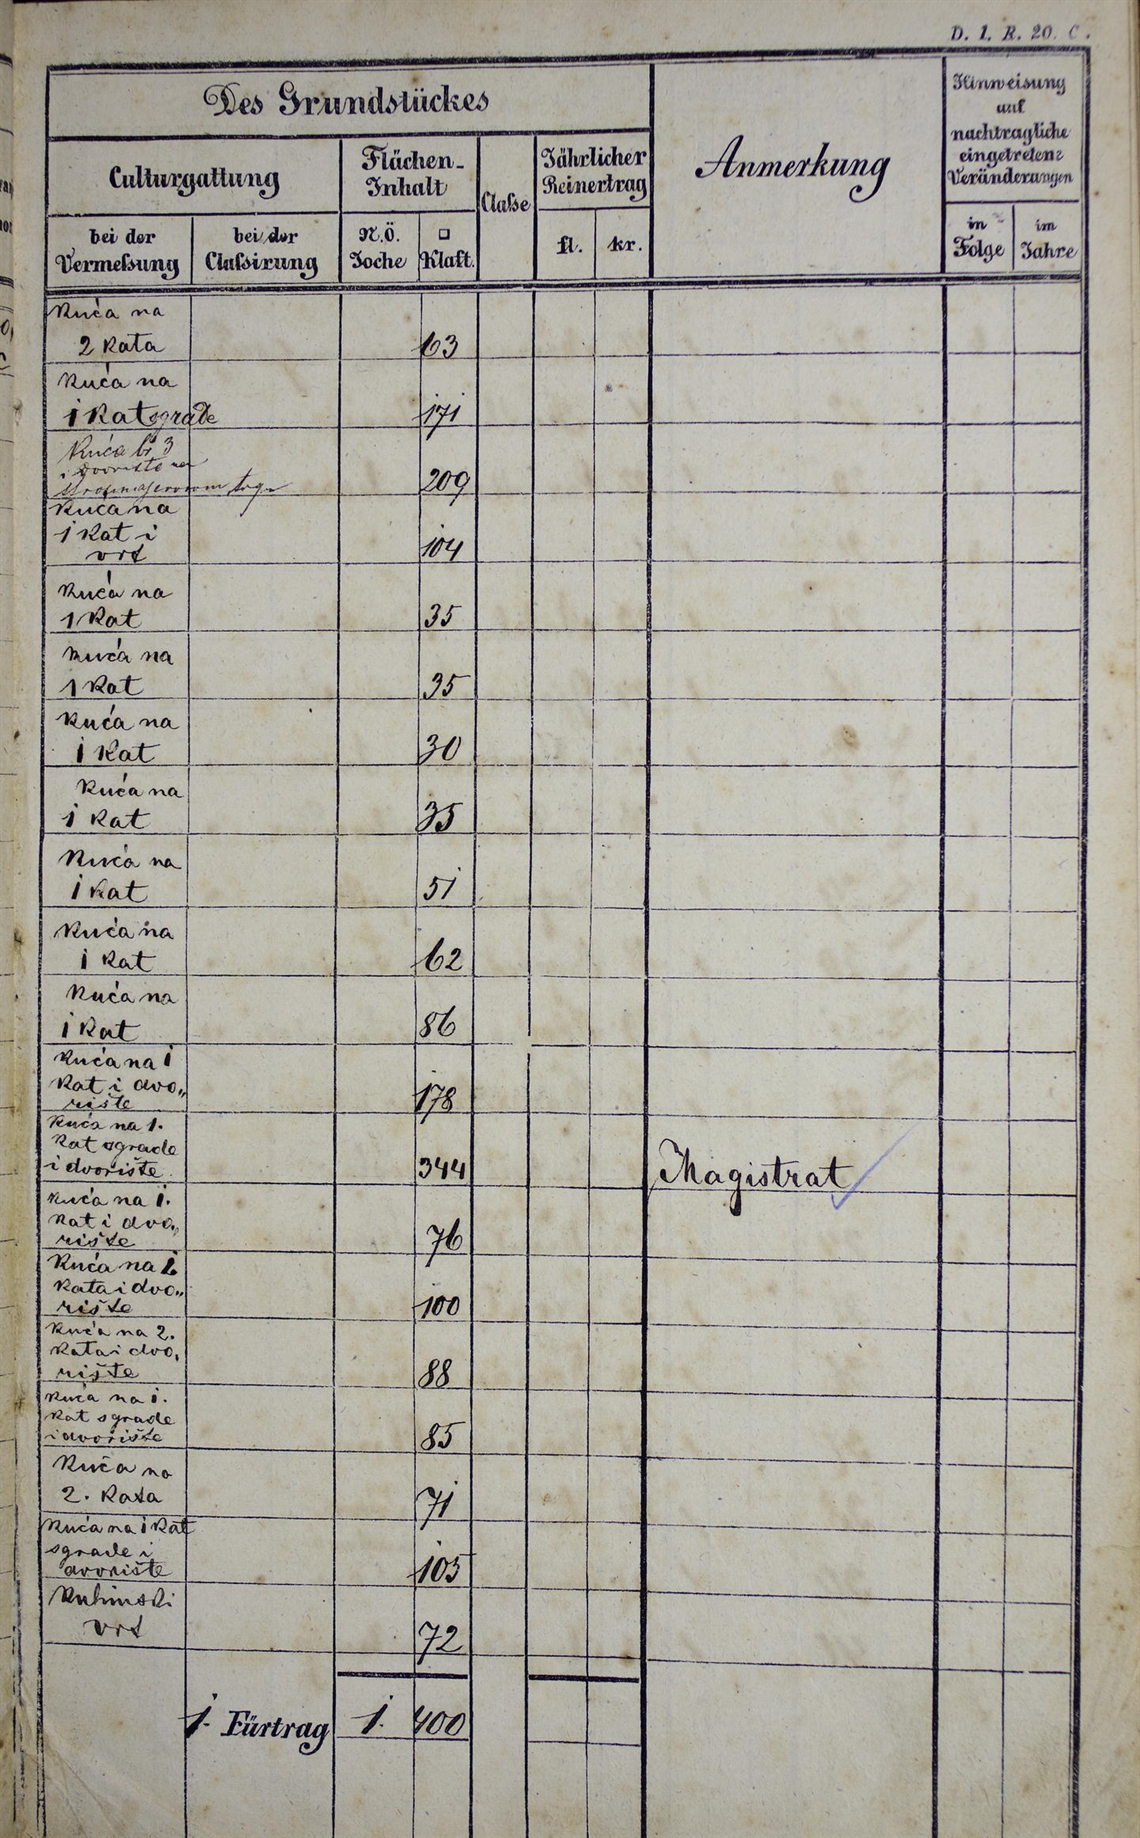 D. 1. R. 20. C.
Des Grundstückes
Anmerkung
Hinweisung
auf
nachtragliche
eingetretene
Veränderungen
Culturgattung
Flächen-
Inhalt
Classe
Jährlicher
Reinertrag
bei der
Vermessung
bei der
Classirung
N.Ö.
Joche
□
Klaft.
fl.
kr.
in
Folge
im
Jahre
Kuća na
2 kata 63
Kuća na
1 kat sgrade 171
Kuća br 3
i dvorište na
Strosmajerovom trgu 209
Kuća na
1 kat i
vrt 104
Kuća na
1 kat 35
Kuća na
1 kat 35
Kuća na
1 kat 30
Kuća na
1 kat 35
Kuća na
1 kat 51
Kuća na
1 kat 62
Kuća na
1 kat 86
Kuća na 1
kat i dvo„
rište 178
Kuća na 1.
kat sgrade
i dvorište 344 Magistrat
Kuća na 1.
kat i dvo„
rište 76
Kuća na 2
kata i dvo„
rište 100
Kuća na 2.
kata i dvo,
rište 88
Kuća na 1.
kat sgrade
i dvorište 85
Kuća na
2. kata 71
Kuća na 1 kat
sgrade i
dvorište 105
Kuhinski
vrt 72
1. Fürtrag 1. 400